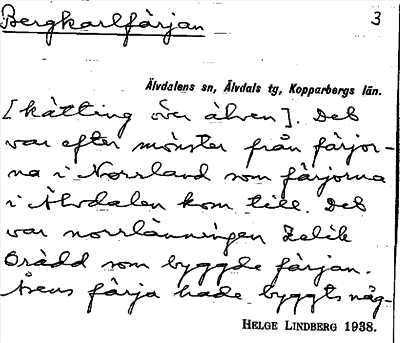 Bergkarlfärjan
3
Älvdalens sn, Älvdals tg, Kopparbergs län.
[kätting över älven]. Det
var efter mönster från färjor-
na i Norrland som färjorna
i Älvdalen kom till. Det
var norrlänningen Selik
Orädd som byggde färjan.
Åsens färja hade byggts någ-
HELGE LINDBERG 1938.